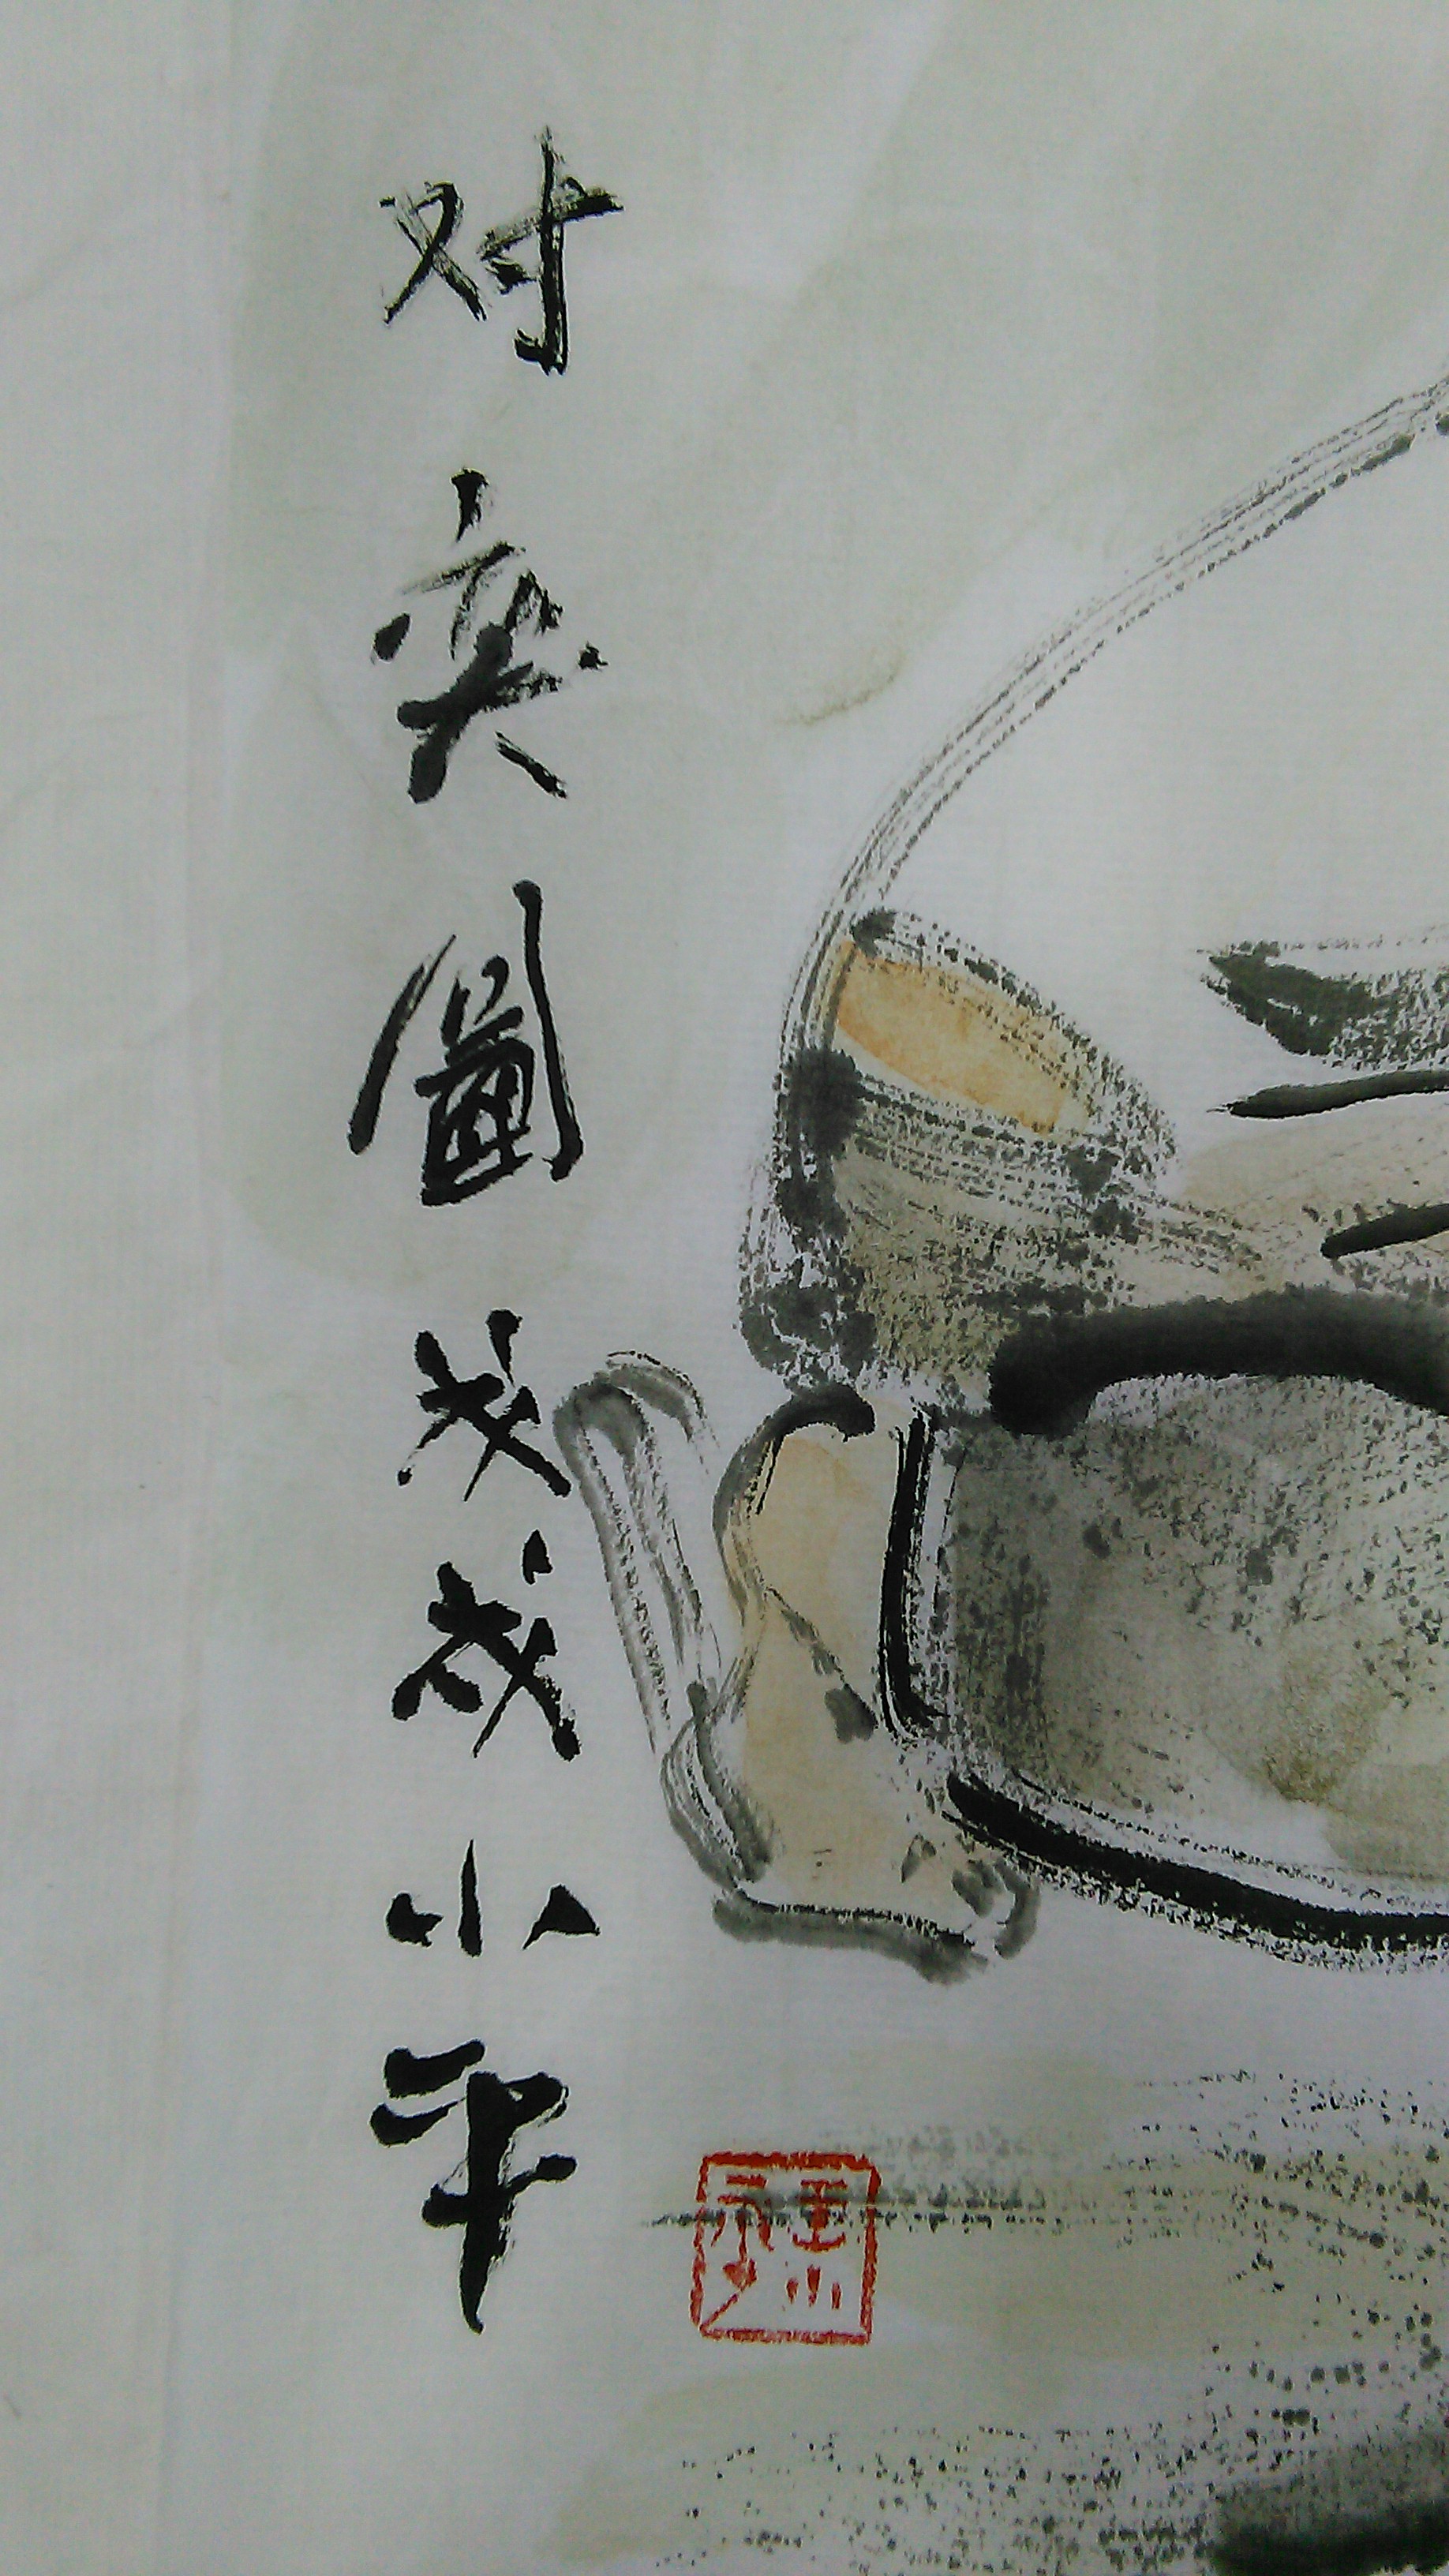 对奕圖戊戌小平